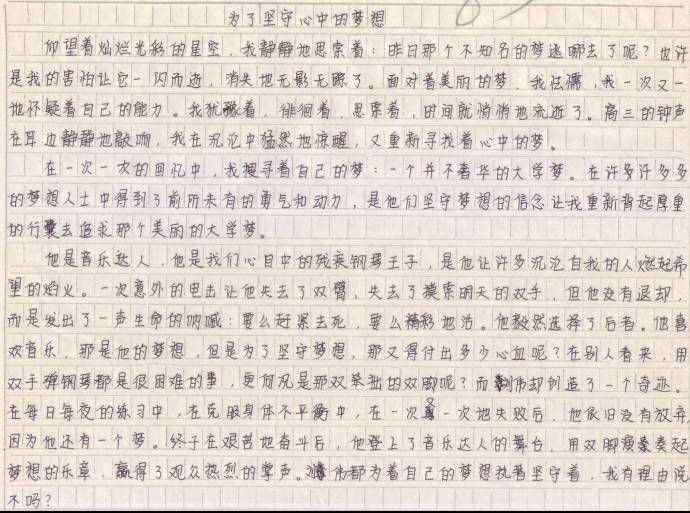 为了坚守心中的梦想
仰望着灿烂光彩的星空，我静静地思索着：昨日那个不知名的梦逃哪去了呢？也许
是我的害怕让它一闪而逝，消失地无影无踪了。面对着美丽的梦，我怯懦，我一次又一
地怀疑着自己的能力。我犹豫着，徘徊着，思索着，时间就悄悄地流逝了。高三的钟声
在耳边静静地敲响，我在沉沦中猛然地惊醒，又重新寻找着心中的梦。
在一次一次的回忆中，我搜寻着自己的梦：一个并不奢华的大学梦。在许多许多多
的梦想人士中得到了前所未有的勇气和动力，是他们坚守梦想的信念让我重新背起厚重
的行囊去追求那个美丽的大学梦。
他是音乐达人，他是我们心目中的残疾钢琴王子，是他让许多沉沦自我的人燃起希
望的焰火。一次意外的电击让他失去了双臂，失去了摸索明天的双手，但他没有退却，
而是发出了一声生命的呐喊：要么赶紧去死，要么精彩地活。他毅然选择了后者。他喜
欢音乐，那是他的梦想，但是为了坚守梦想，那又得付出多少心血呢？在别人看来，用
双手弹钢琴都是很困难的事，更何况是那双笨拙的双脚呢？而刘伟却创造了一个奇迹。
在每日每夜的练习中，在克服身体不平衡中，在一次又一次地失败后，他依旧没有放弃，
因为他还有一个梦。终于在艰苦地奋斗后，他登上了音乐达人的舞台，用双脚演奏起
梦想的乐章，赢得了观众热烈的掌声。刘伟都为着自己的梦想执著坚守着，我有理由说
不吗？